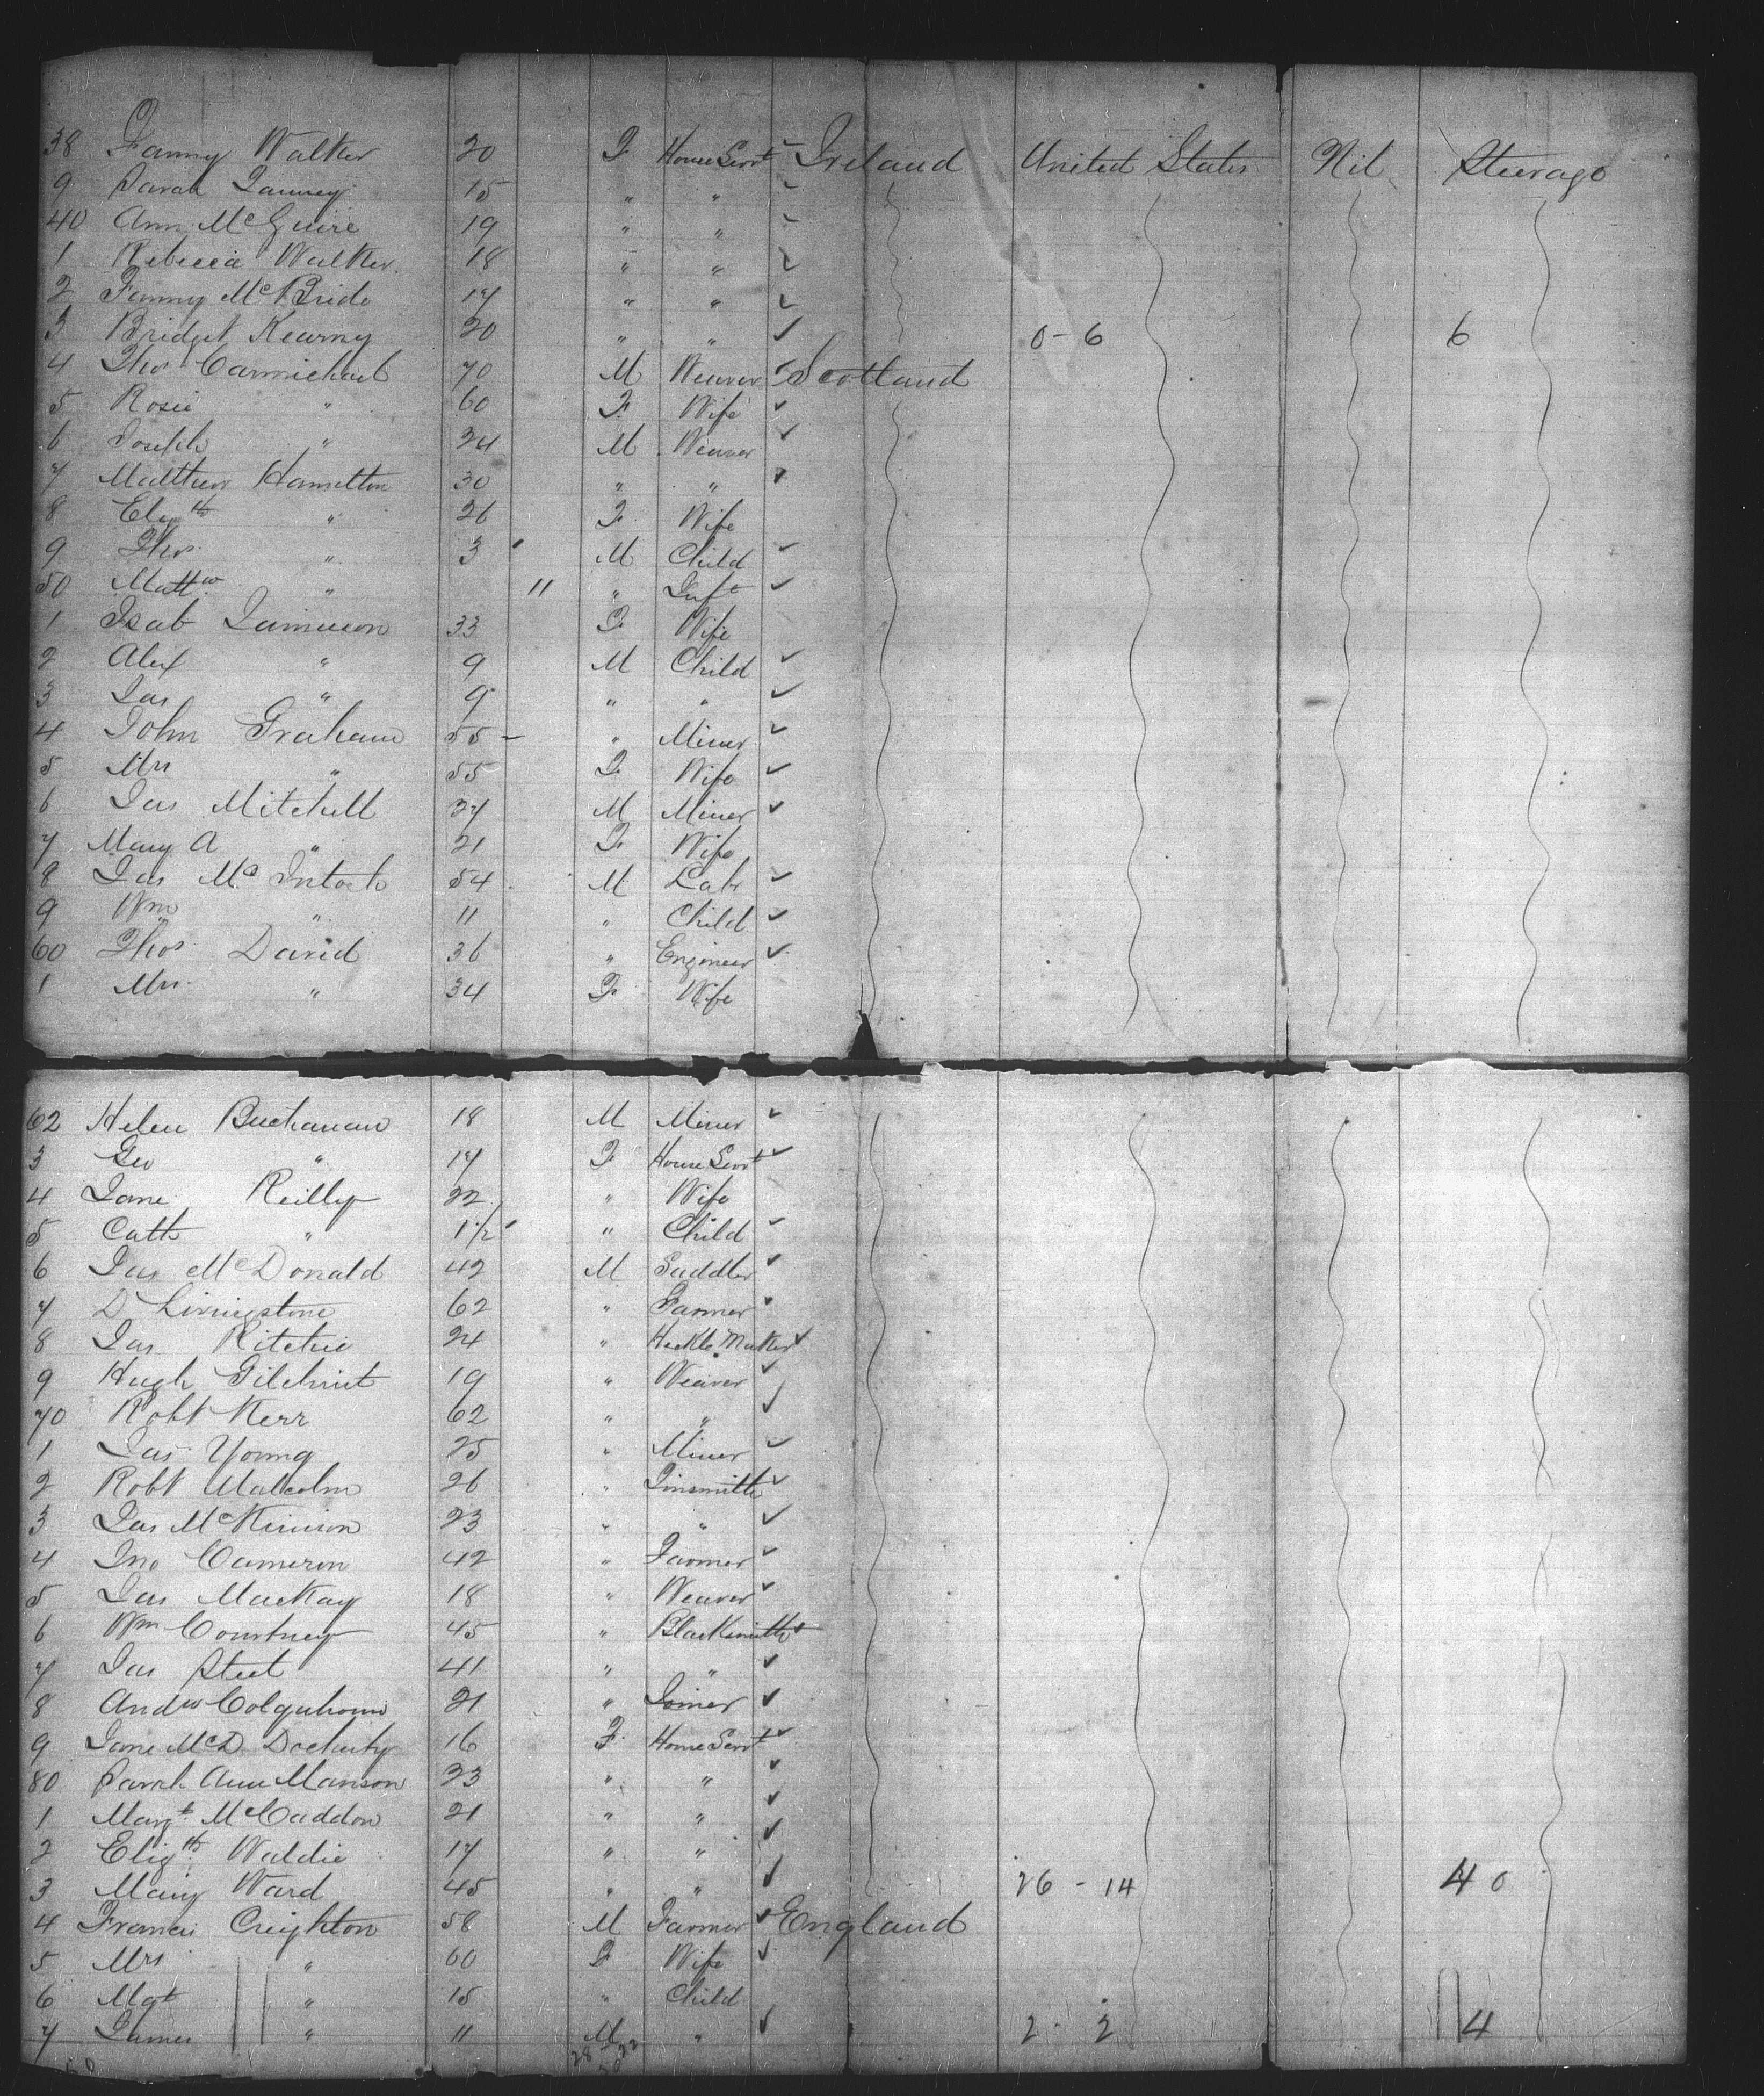 38 Fanny Walker 20 F House Servt Ireland United States Nil Steerage
9 Sarah 15 " "
40 Ann McGuire 19 " "
1 Rebecca Walker 18 " "
2 Fanny McBride 17 " "
3 Bridget Kearny 20 " " 0-6 6
4 Thos Carmichael 70 M Weaver Scotland
5 Rosie " 60 F Wife
6 Joseph " 24 M Weaver
7 Matthew Hamilton 30 " "
8 Elizth " 26 F Wife
9 Thos " 3 M Child
50 Mattw " 11 " Inft
1 Isab Jamieson 33 F Wife
2 Alex " 9 M Child
3 Jas " 9 " "
4 John Graham 55 - " Miner
5 Mrs " 55 F Wife
6 Jas Mitchell 27 M Miner
7 Mary A " 21 F Wife
8 Jas McIntosh 54 M Labr
9 Wm " 11 " Child
60 Thos David 36 " Engineer
1 Mrs " 34 F Wife
62 Helen Buchanan 18 M Miner
3 Geo " 17 F House Servt
4 Jane Reilly 22 " Wife
5 Cath " 1 1/2 " Child
6 Jas McDonald 42 M Saddler
7 D Livingstone 62 " Farmer
8 Jas Ritchie 24 " Heckle Maker
9 Hugh Gilchrist 19 " Weaver
70 Robt Kerr 62 " "
1 Jas Young 25 " Miner
2 Robt Malcolm 26 " Tinsmith
3 Jas McKinnon 23 " "
4 Jno Cameron 42 " Farmer
5 Jas MacKay 18 " Weaver
6 Wm Courtney 45 " Blacksmith
7 Jas Steel 41 " "
8 Andw Colquhoun 21 " Joiner
9 Jane McD Docharty 16 F House Servt
80 Sarah Ann Manson 23 " "
1 Margt McCaddon 21 " "
2 Elizth Waldie 17 " "
3 Mary Ward 45 " " 26 - 14 40
4 Francis Creighton 58 M Farmer England
5 Mrs " 60 F Wife
6 Mgt " 15 " Child
7 James " 11 M " 2 - 2 4
28 22
50